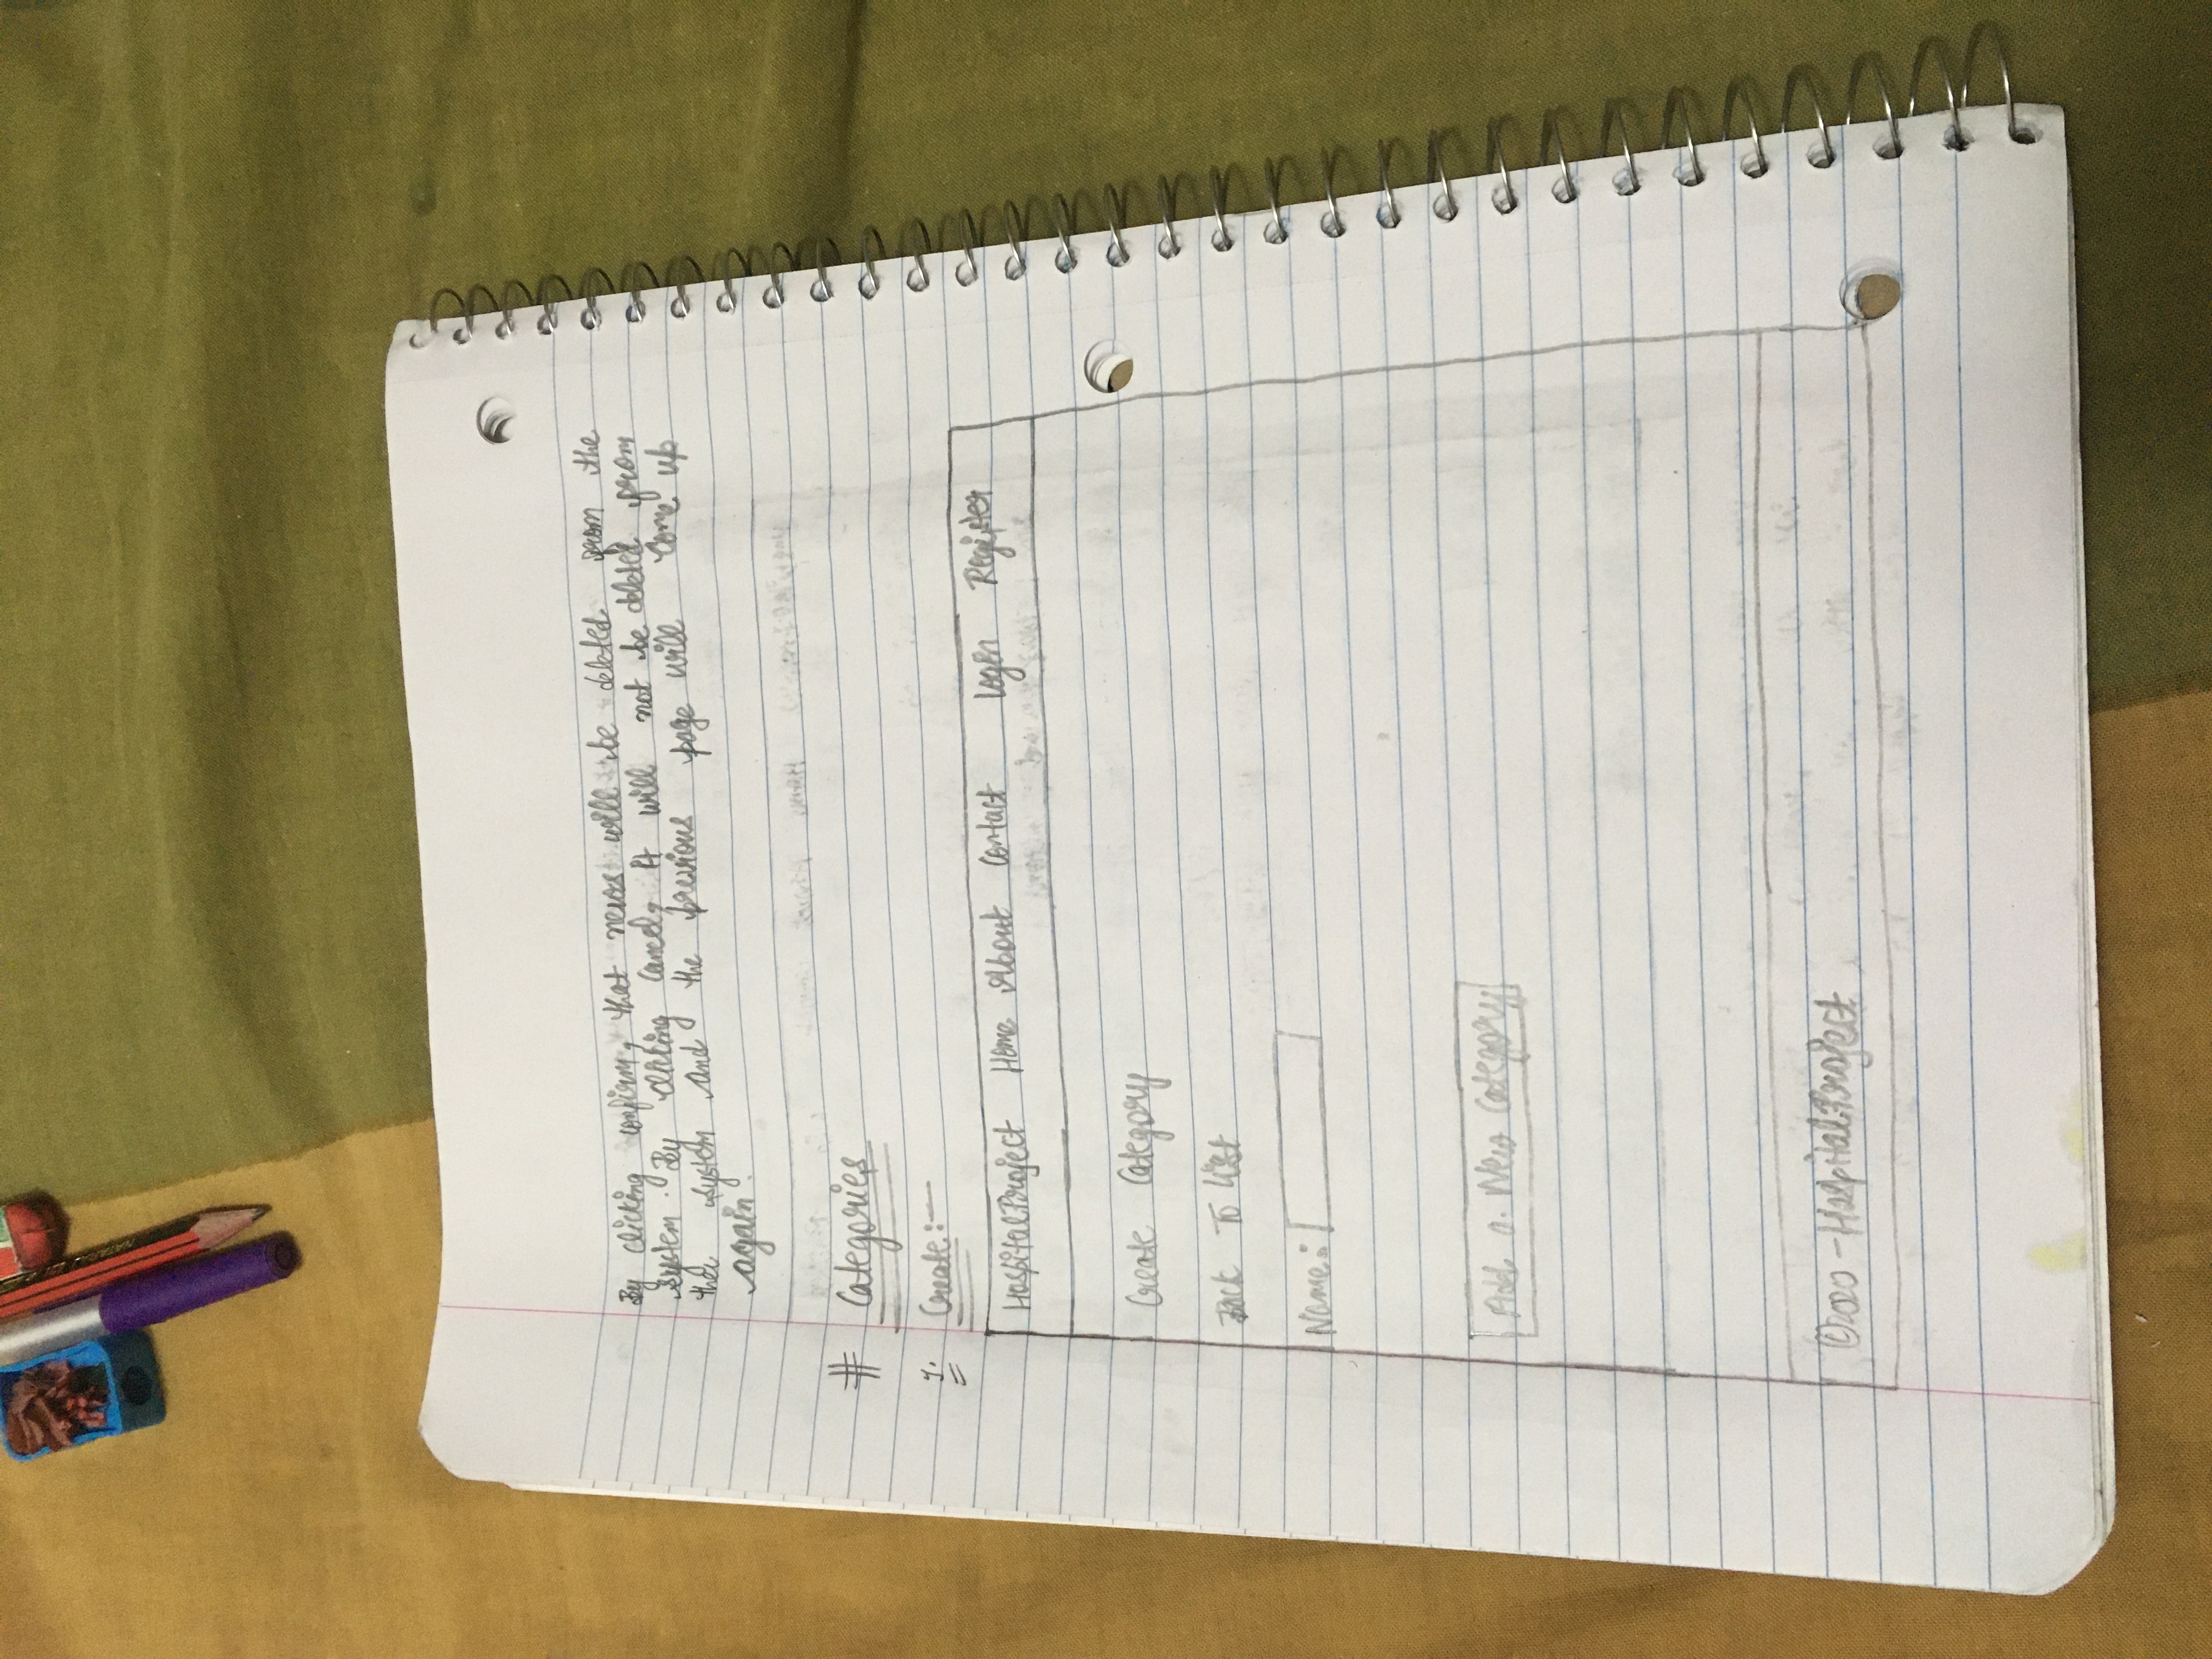 By clicking confirm, that news will be deleted from the
system. By clicking cancel, it will not be deleted from
the system and the previous page will come up
again.
# Categories
1. Create:—
HospitalProject Home About Contact Login Register
Create Category
Back To List
Name:
Add a New Category
©2020 - HospitalProject